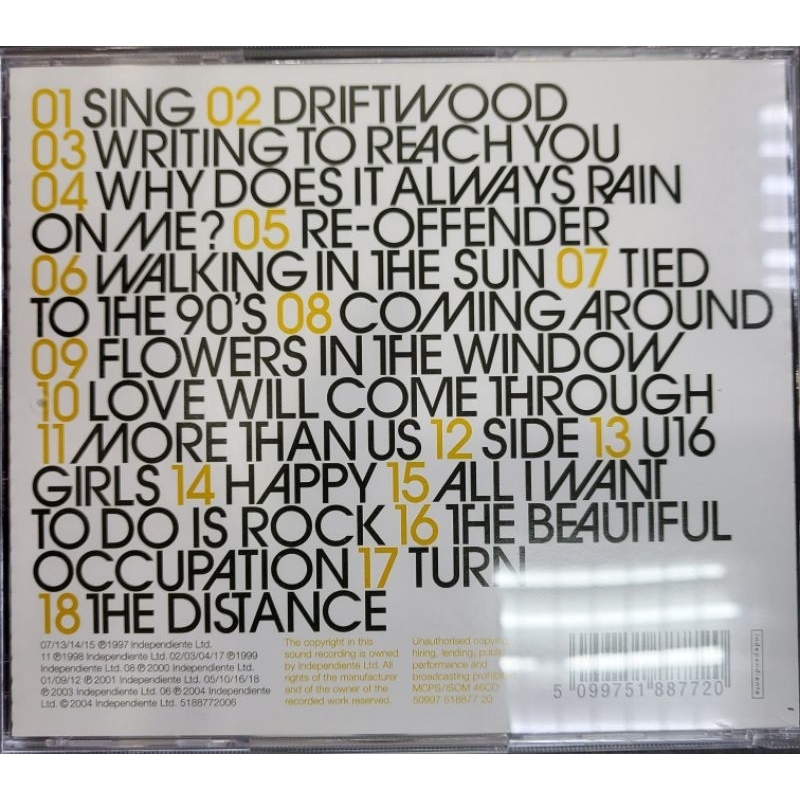 01 SING 02 DRIFTWOOD
03 WRITING TO REACH YOU
04 WHY DOES IT ALWAYS RAIN
ON ME? 05 RE-OFFENDER
06 WALKING IN THE SUN 07 TIED
TO THE 90'S 08 COMING AROUND
09 FLOWERS IN THE WINDOW
10 LOVE WILL COME THROUGH
11 MORE THAN US 12 SIDE 13 U16
GIRLS 14 HAPPY 15 ALL I WANT
TO DO IS ROCK 16 THE BEAUTIFUL
OCCUPATION 17 TURN
18 THE DISTANCE
07/13/14/15 ℗1997 Independiente Ltd.
11 ℗1998 Independiente Ltd. 02/03/04/17 ℗1999
Independiente Ltd. 08 ℗ 2000 Independiente Ltd.
01/09/12 ℗ 2001 Independiente Ltd. 05/10/16/18
℗ 2003 Independiente Ltd. 06 ℗ 2004 Independiente
Ltd. © 2004 Independiente Ltd. 5188772006
The copyright in this
sound recording is owned
by Independiente Ltd. All
rights of the manufacturer
and of the owner of the
recorded work reserved.
Unauthorised copying,
hiring, lending, public
performance and
broadcasting prohibited
MCPS/ISOM 46CD
50997 51887 7 20
5 099751 887720
independiente